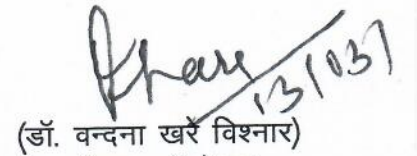 Khare
13/03/
(डॉ. वन्दना खरे विश्नार)